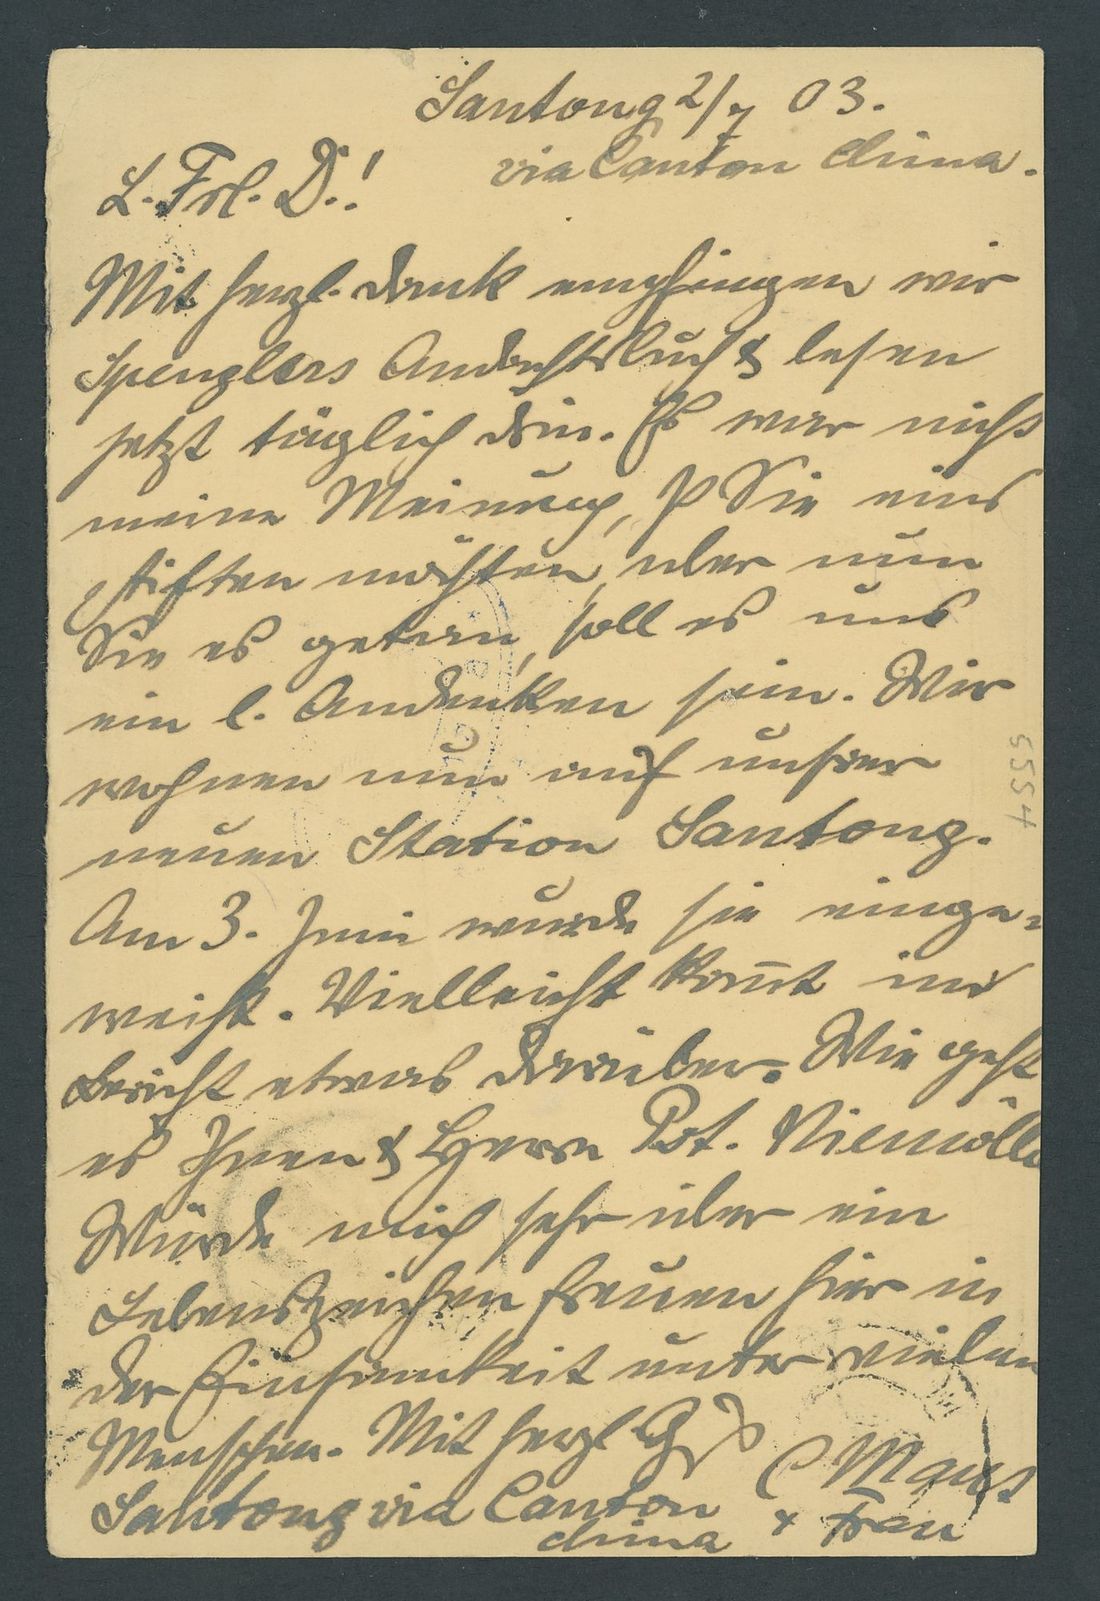 Santong 2/7 03.
via Canton China.
L. Frl. D.!
Mit herzl. Dank empfingen wir
Spenglers Andachtsbuch & lesen
jetzt täglich drin. Es war nicht
meine Meinung, Sie eins
stiften möchten, aber nun
Sie es getan, soll es uns
ein l. Andenken sein. Wir
wohnen nun auf unsrer
neuen Station Santong.
Am 3. Juni wurde sie einge-
weiht. Vielleicht kom̅t im
Bericht etwas darüber. Wie geht
es Ihnen & Herrn Pst. Niemöller
Würde mich sehr über ein
Lebenszeichen freuen hier in
der Einsamkeit unter vielen
Menschen. Mit herzl. Gr
C Maus
Santong via Canton & Frau
China
5554